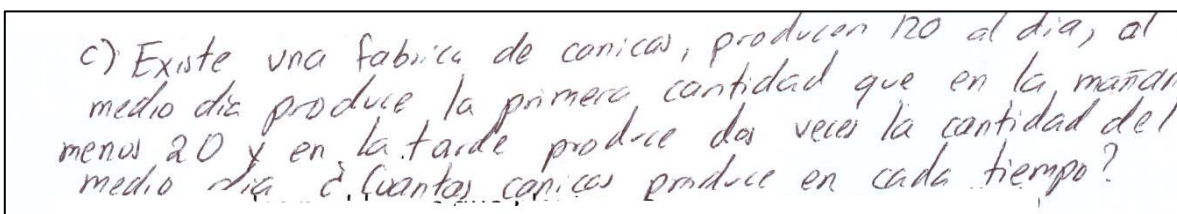 c) Existe una fabrica de canicas, producen 120 al dia, al
medio dia produce la primera cantidad que en la mañan
menos 20 y en la tarde produce dos veces la cantidad del
medio dia ¿Cuantas canicas produce en cada tiempo?